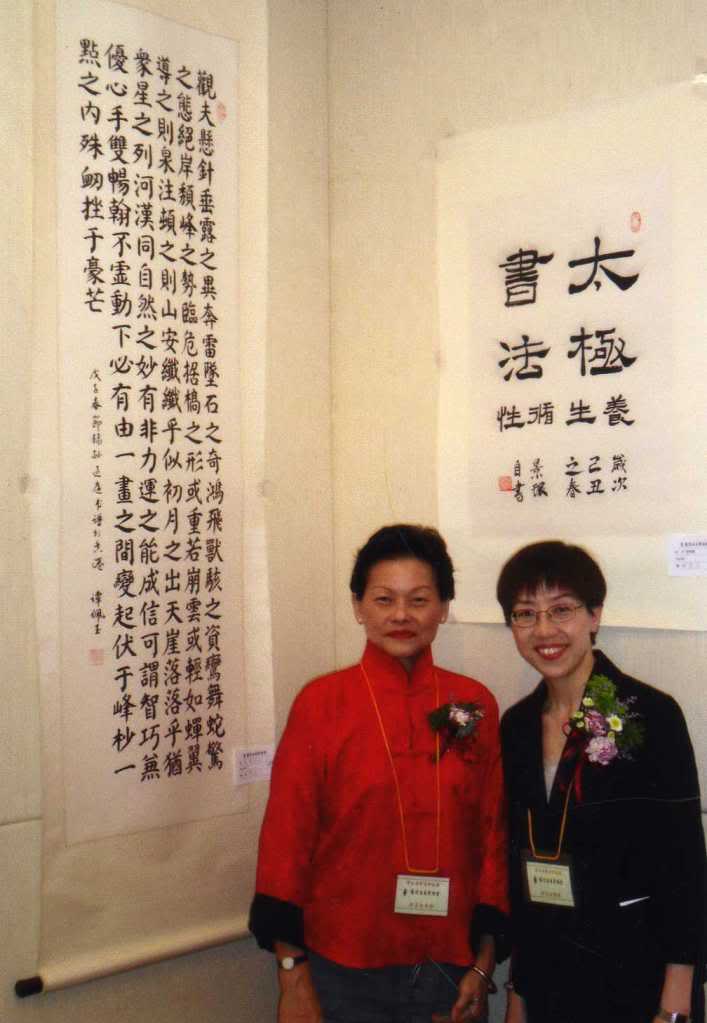 觀夫懸針垂露之異奔雷墜石之奇鴻飛獸駭之資鸞舞蛇驚
之態絕岸頹峰之勢臨危据槁之形或重若崩雲或輕如蟬翼
導之則泉注頓之則山安纖纖乎似初月之出天崖落落乎猶
衆星之列河漢同自然之妙有非力運之能成信可謂智巧兼
優心手雙暢翰不虛動下必有由一畫之間變起伏于峰杪一
點之內殊衂挫于豪芒
戊子春節錄孫過庭書譜於香港 譚佩玉
太極
書法
養生循性
歲次
己丑
之春
景
自書